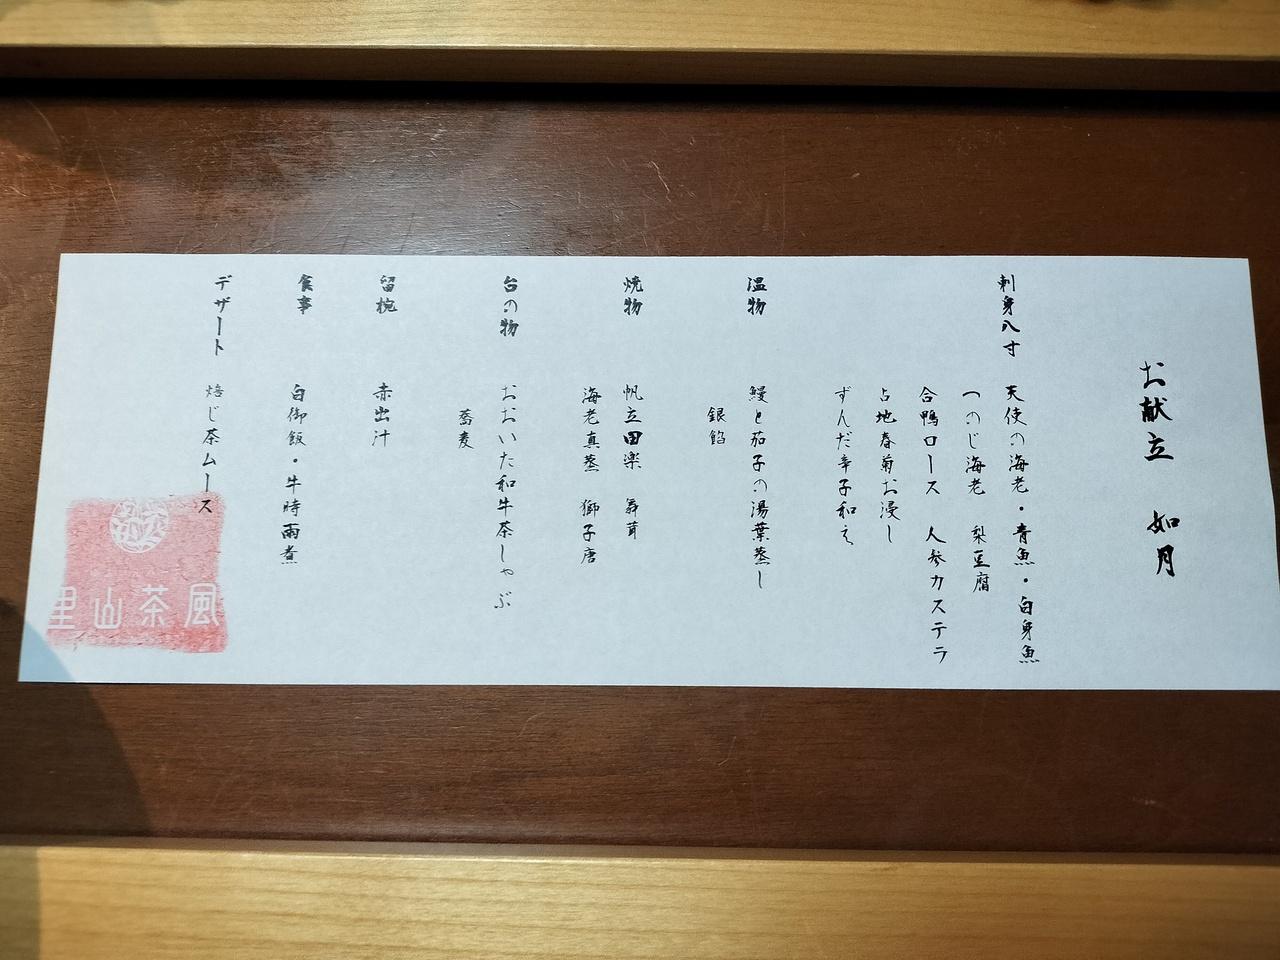 お献立　如月
刺身八寸　天使の海老・青魚・白身魚
つのじ海老　梨豆腐
合鴨ロース　人参カステラ
占地春菊お浸し
ずんだ辛子和え
温物　鰻と茄子の湯葉蒸し
銀餡
焼物　帆立田楽　舞茸
海老真蒸　獅子唐
台の物　おおいた和牛茶しゃぶ
蕎麦
留椀　赤出汁
食事　白御飯・牛時雨煮
デザート　焙じ茶ムース
風茶山里